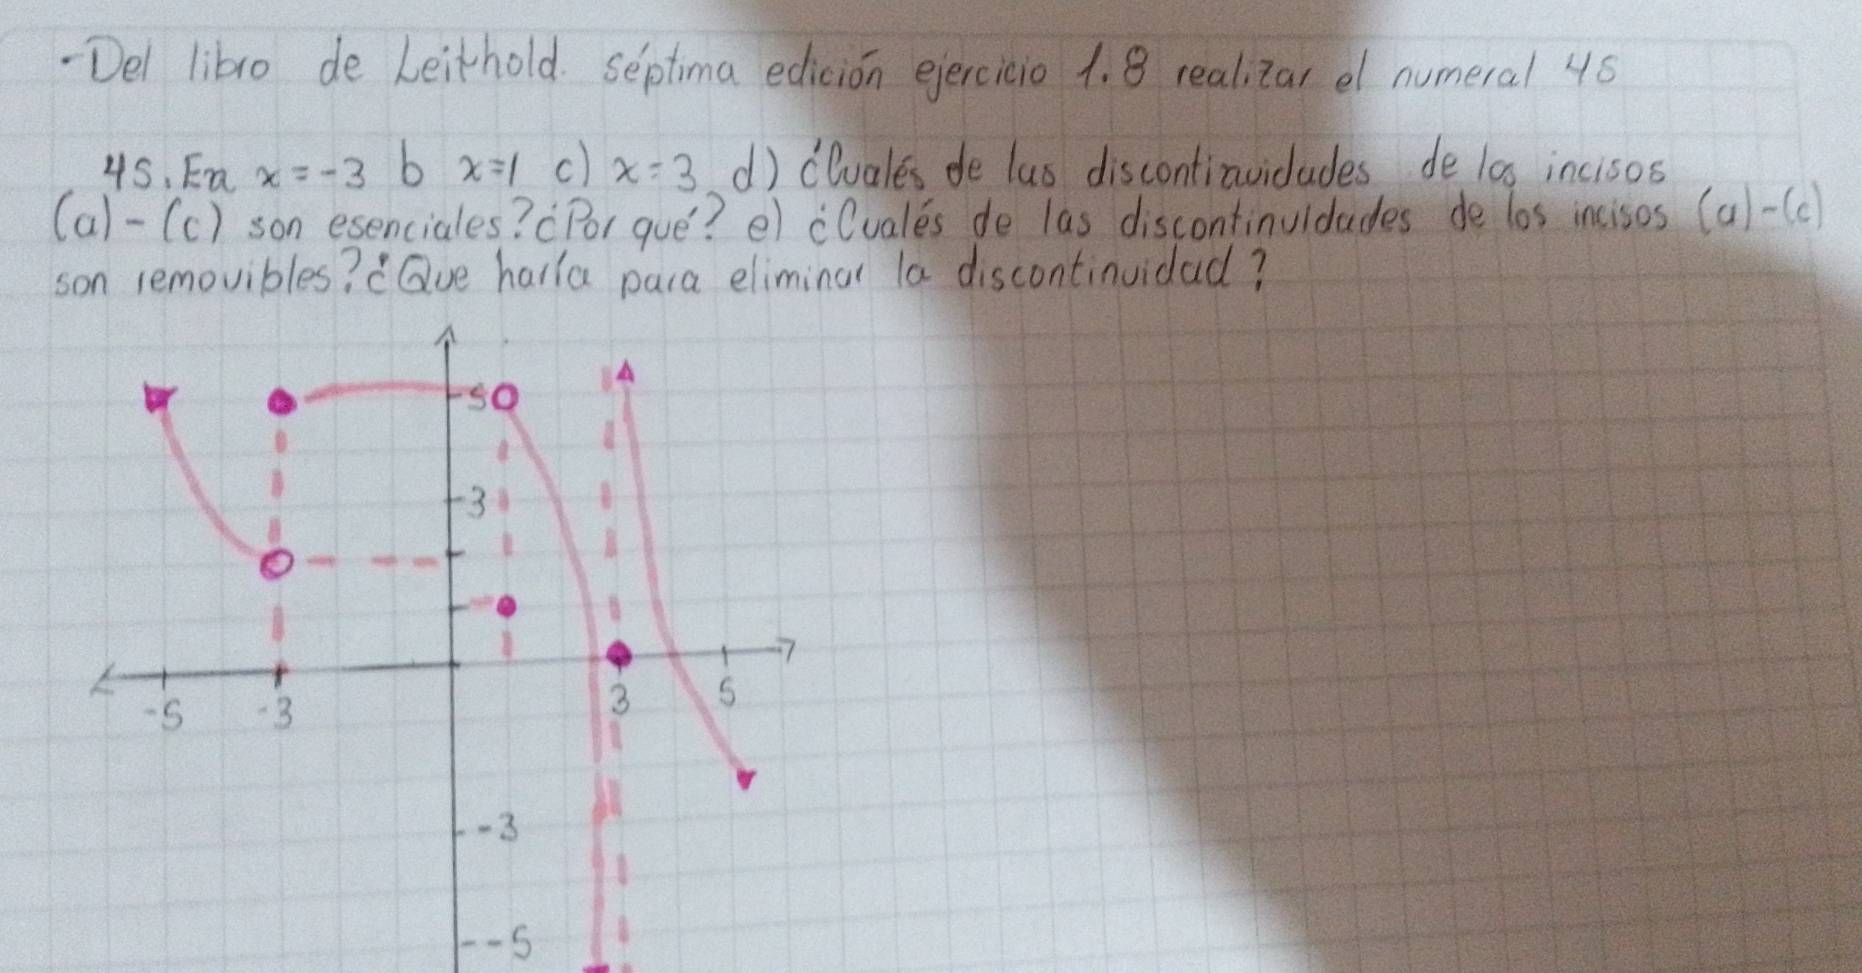 -Del libro de Leithold. séptima edición ejercicio 1.8 realizar el numeral 45
45. En x=-3 b x=1 c) x=3 d) ¿Cuáles de las discontinuidades de los incisos
(a)-(c) son esenciales? ¿Por qué? e) ¿Cuáles de las discontinuidades de los incisos (a)-(c)
son removibles? ¿Que haría para eliminar la discontinuidad?
5
3
-5 -3 3 5
-3
-5